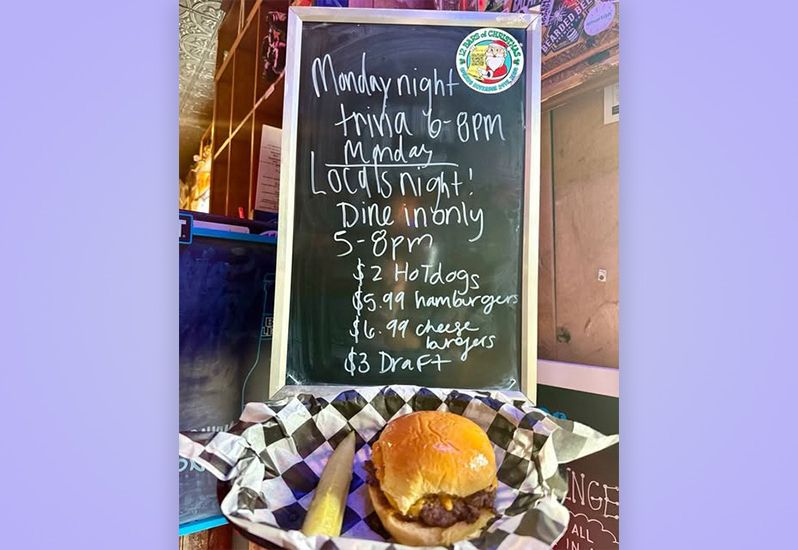 12 BARS of CHRISTMAS
BEARDED BEE
Monday night
trivia 6-8pm
Monday
Locals night!
Dine in only
5-8pm
$2 HOTdogs
$5.99 hamburgers
$6.99 cheese
burgers
$3 Draft
INGE
ALL
IN